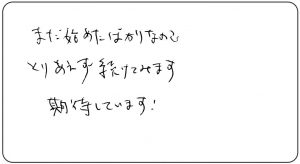 まだ始めたばかりなので
とりあえず続けてみます
期待しています!